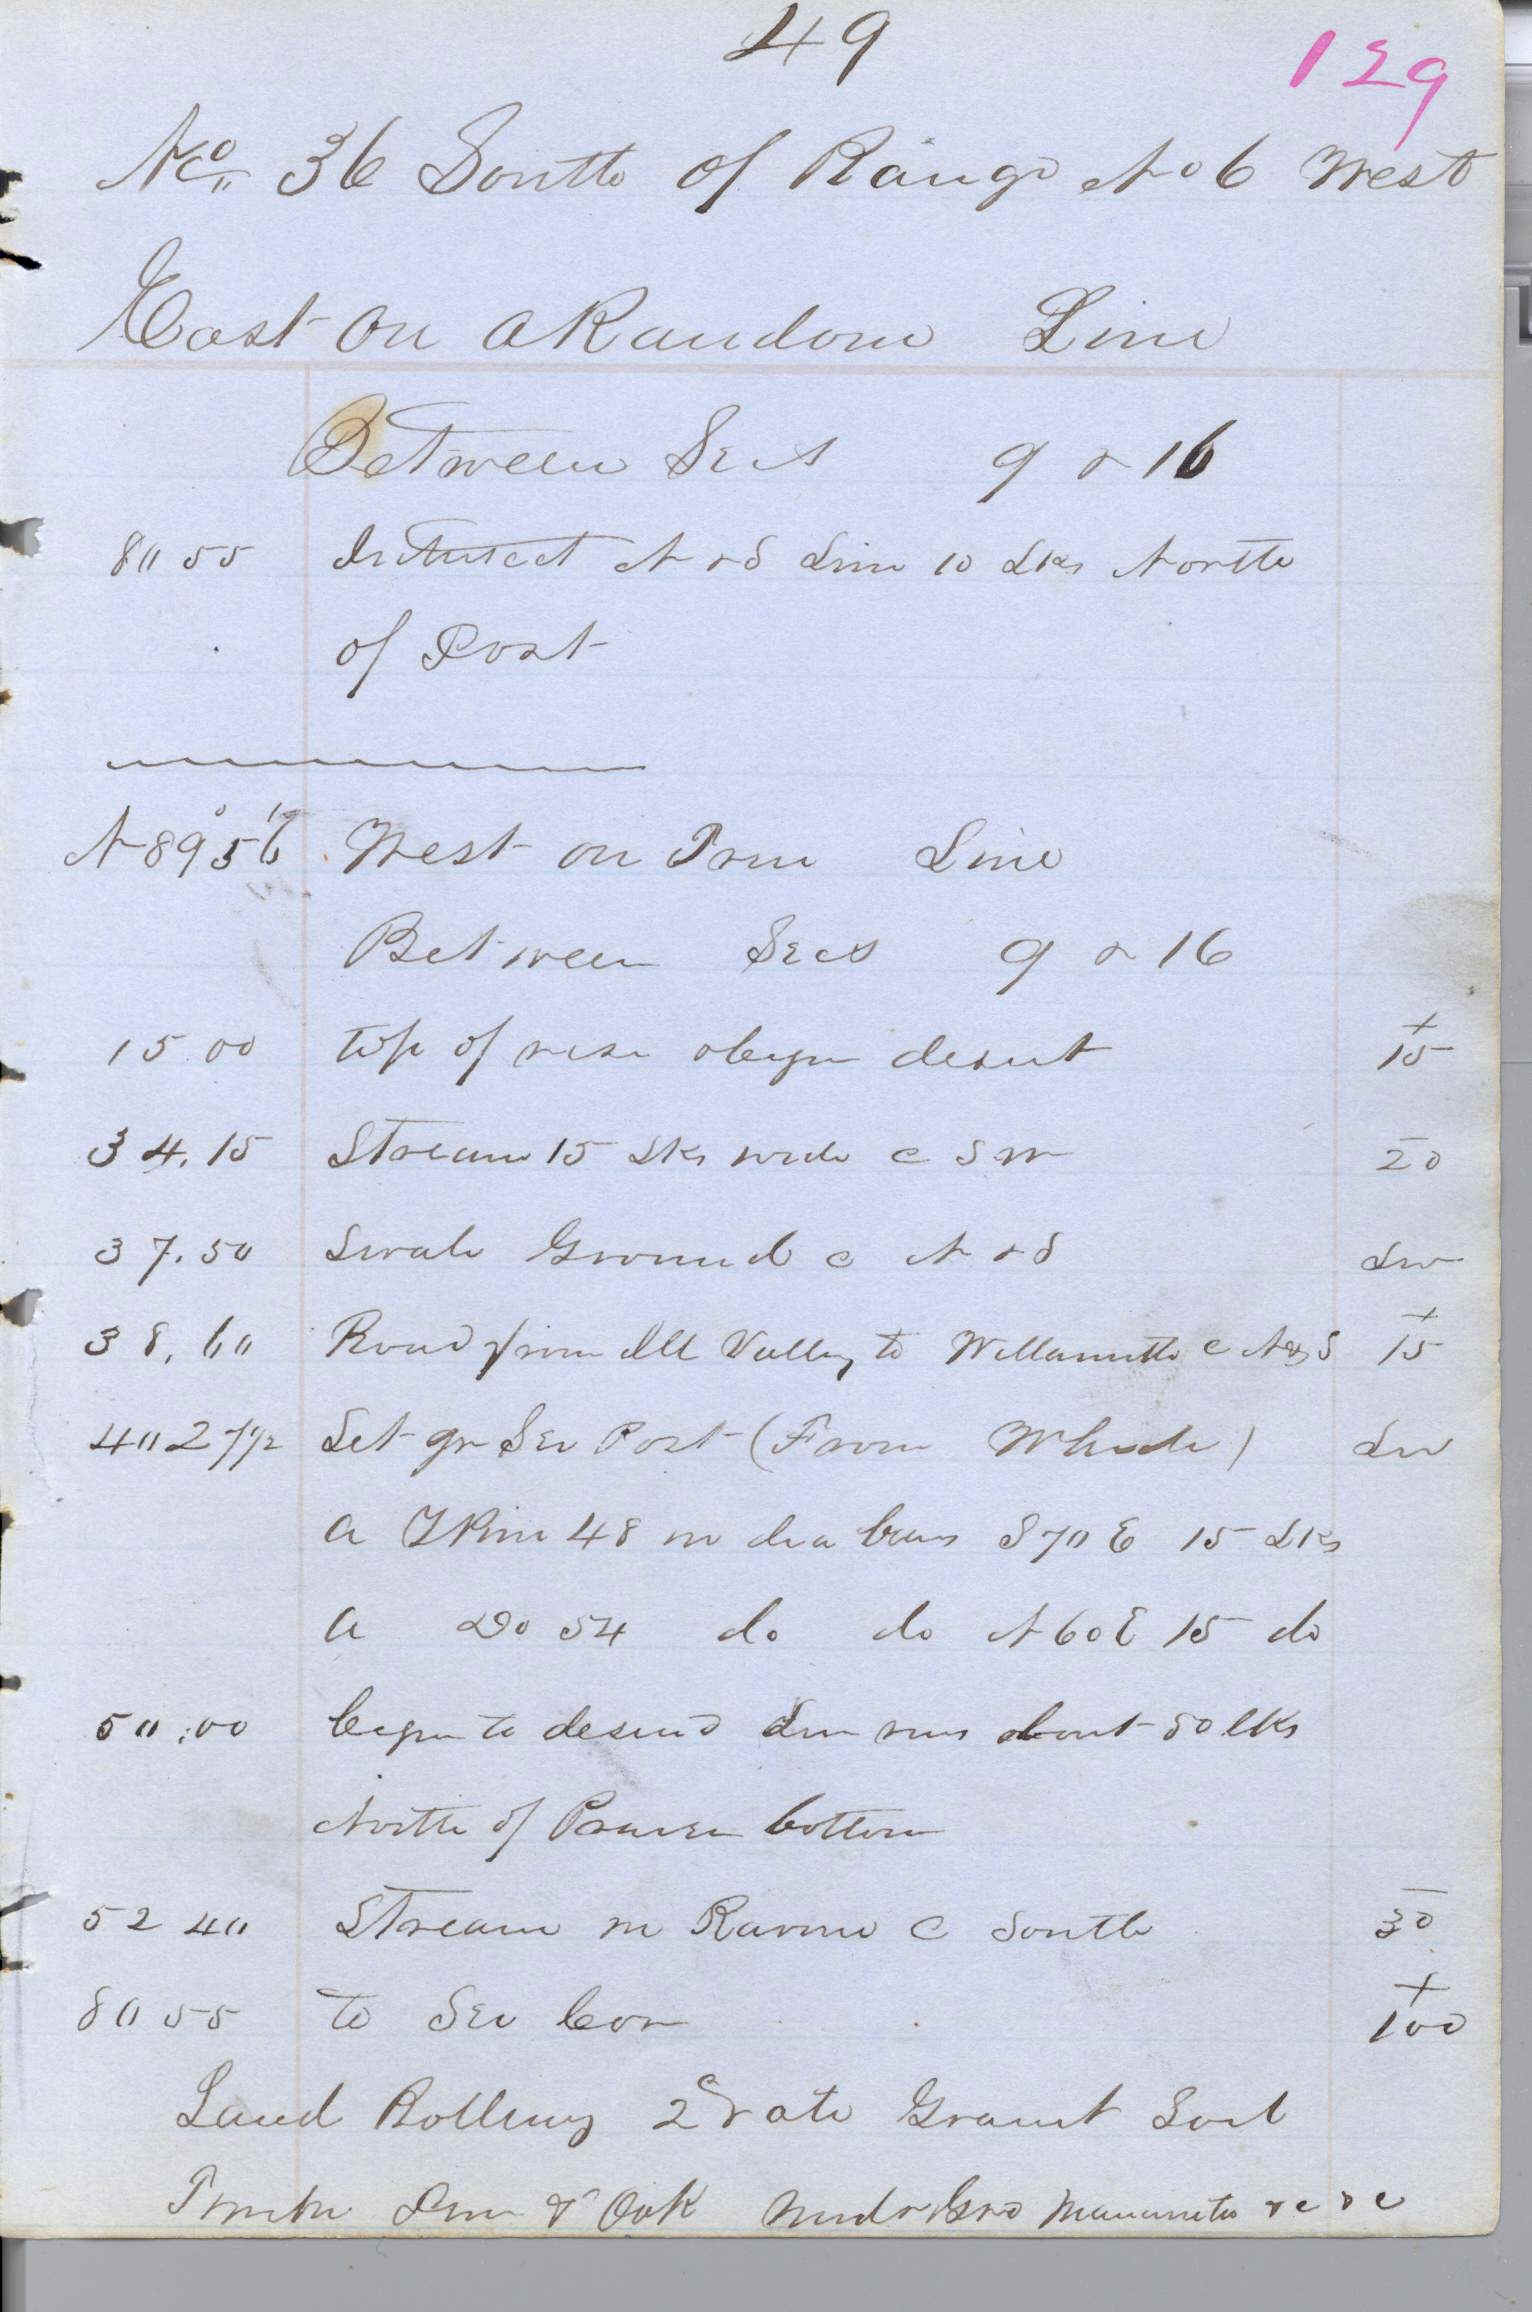 49
129
No. 36 South of Range No 6 West
East on a Random Line
Between Secs 9 & 16
80 55 Intersect N & S Line 10 Lks North
of Post
N 89° 56' West on True Line
Between Secs 9 & 16
15 00 top of rise & begin desent + 15
34.15 Stream 15 Lks wide c S W - 20
37.50 Swale Ground c N & S Lev
38.60 Road from Ill Valley to Willamette c N & S + 15
40 27 1/2 Set qr Sec Post (From Whch) Lev
a Y Pine 48 in dia bears S 70 E 15 Lks
a Do 54 do do N 60 E 15 do
50.00 begin to desend Line runs about 50 lks
North of Prairie bottom
52 40 Stream in Ravine C South - 30
80 55 to Sec Cor + 100
Land Rolling 2d rate Granit Soil
Timber Pine & Oak Und Gro Manzanita &c &c